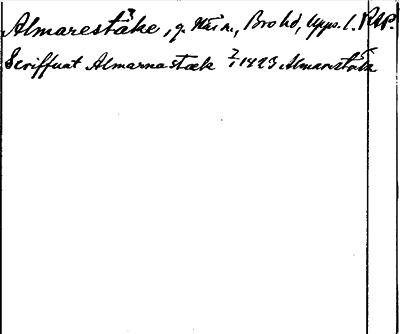 Almarestäke, g. Stäks n., Bro hd, Upps. l. RAP.
Scriffuat Almarnastæk 7/1 1423 Almarestäk